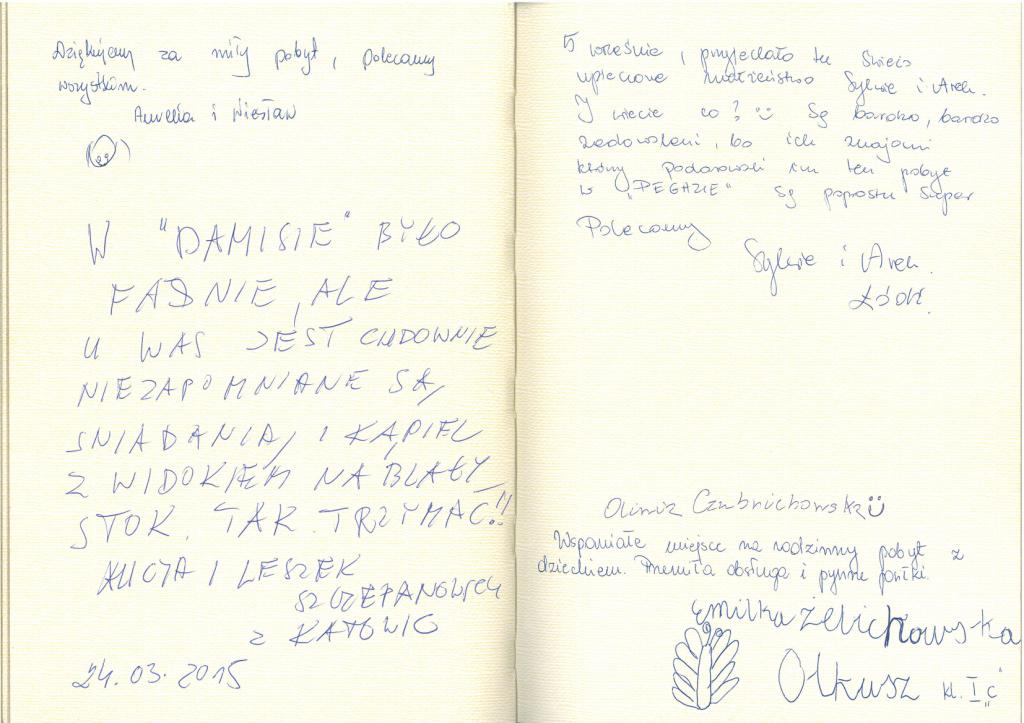 Dziękujemy za miły pobyt, polecamy
wszystkim.
Aurelia i Wiesław
W "DAMISIE" BYŁO
ŁADNIE, ALE
U WAS JEST CUDOWNIE
NIEZAPOMNIANE SĄ,
SNIADANIA, I KĄPIEL
Z WIDOKIEM NA BIAŁY
STOK. TAK TRZYMAĆ!!
ŁUCJA I LESZEK
SZCZEPANOWSCY
z KATOWIC
24.03.2015
wrześnie, przyjechało tu świeżo
upieczone małżeństwo Sylwie i Arek.
I wiecie co? Są bardzo, bardzo
zadowoleni, bo ich znajomi
którzy podarowali im ten pobyt
w "PEGAZIE" Są poprostu Super
Polecamy
Sylwie i Arek.
Łódź.
Wspaniałe miejsce na rodzinny pobyt z
dzieckiem. Przemiła obsługa i pyszne posiłki.
Emilka Żelichowska
Olkusz kl. I "c"